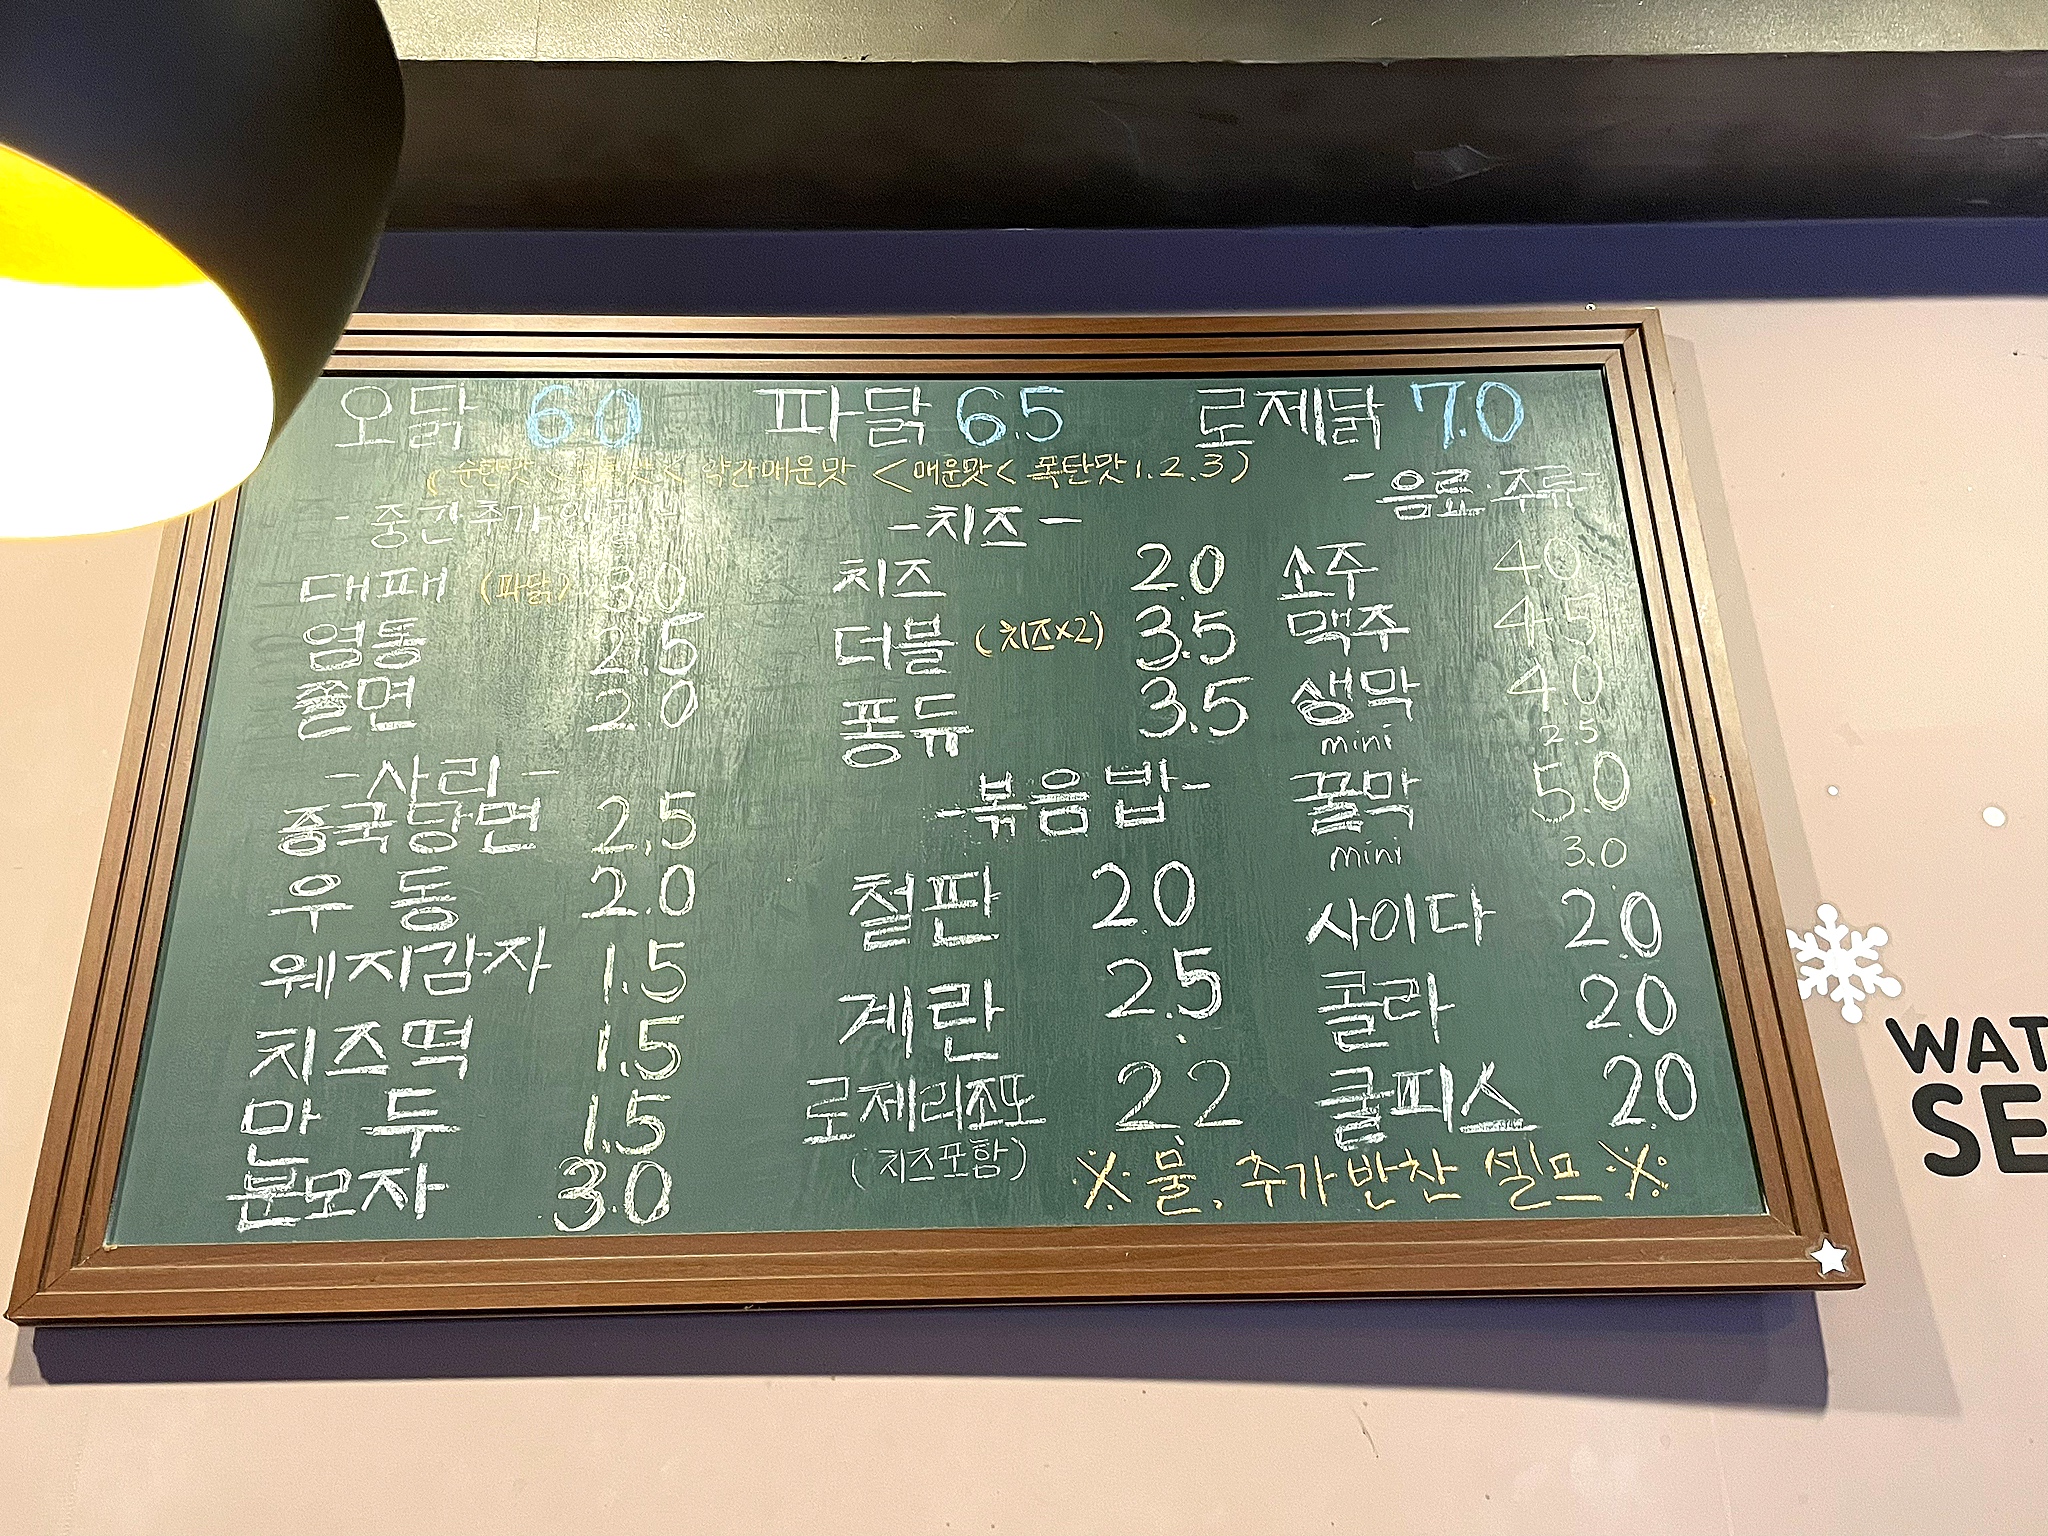 오닭 6.0 파닭 6.5 로제닭 7.0
(순한맛 < 보통맛 < 약간매운맛 < 매운맛 < 폭탄맛 1.2.3)
- 중간추가인원 -
대패 (파닭) 3.0
염통 2.5
쫄면 2.0
- 사리 -
중국당면 2.5
우동 2.0
웨지감자 1.5
치즈떡 1.5
만두 1.5
분모자 3.0
- 치즈 -
치즈 2.0
더블 (치즈x2) 3.5
퐁듀 3.5
- 볶음밥 -
철판 2.0
계란 2.5
로제리조또 2.2
(치즈포함)
- 음료·주류 -
소주 4.0
맥주 4.5
생막 4.0
mini 2.5
꿀막 5.0
mini 3.0
사이다 2.0
콜라 2.0
쿨피스 2.0
※ 물, 추가반찬 셀프 ※
WAT
SE